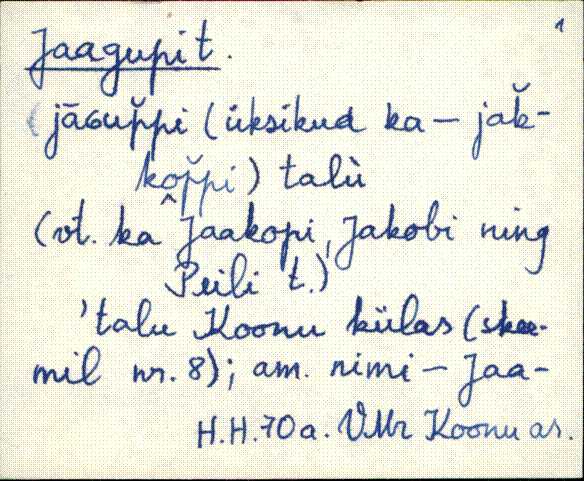 1
Jaagupi t.
(jāɢup̆pi (üksikud ka – jak̆-
kop̆pi) talù
(vt. ka Jaakopi, Jakobi ning
Peili t.)
'talu Koonu külas (skee-
mil nr. 8); am. nimi – Jaa-
H.H. 70 a. VMr Koonu as.